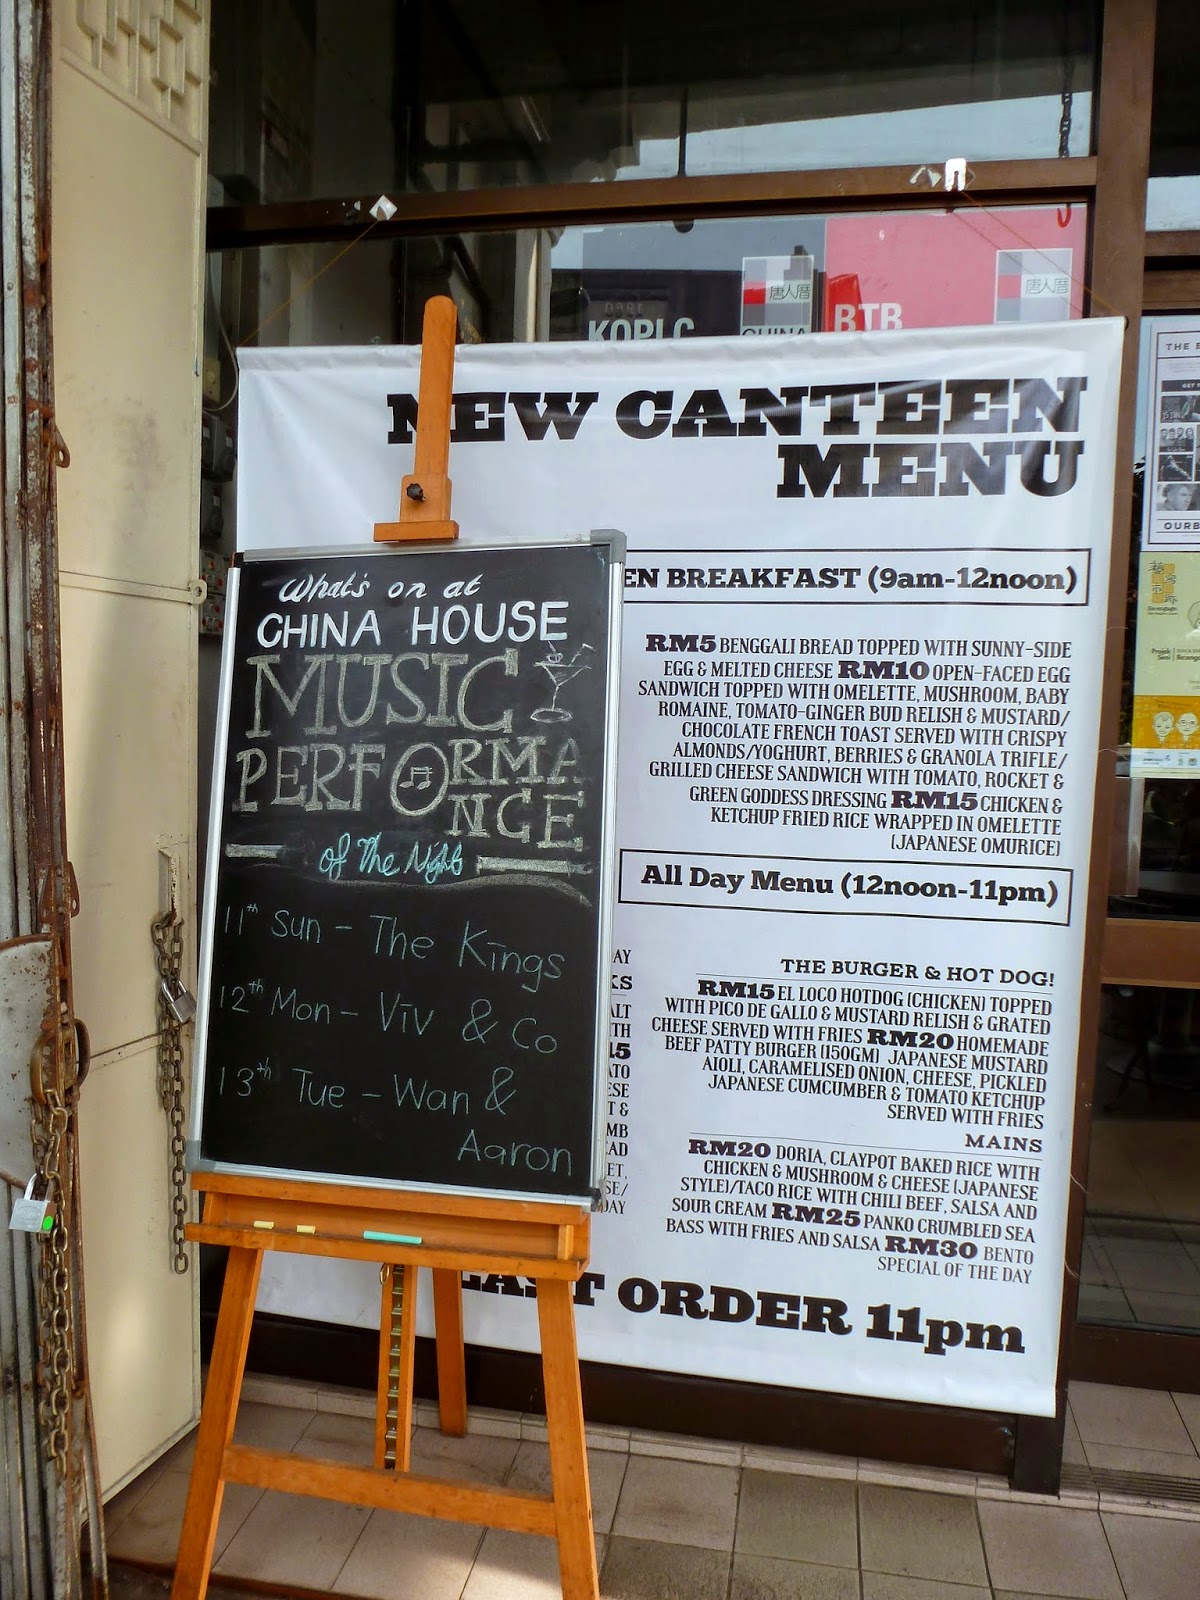 唐人厝
唐人厝
BTB
NEW CANTEEN
MENU
EN BREAKFAST (9am-12noon)
RM5 BENGGALI BREAD TOPPED WITH SUNNY-SIDE
EGG & MELTED CHEESE RM10 OPEN-FACED EGG
SANDWICH TOPPED WITH OMELETTE, MUSHROOM, BABY
ROMAINE, TOMATO-GINGER BUD RELISH & MUSTARD/
CHOCOLATE FRENCH TOAST SERVED WITH CRISPY
ALMONDS/YOGHURT, BERRIES & GRANOLA TRIFLE/
GRILLED CHEESE SANDWICH WITH TOMATO, ROCKET &
GREEN GODDESS DRESSING RM15 CHICKEN &
KETCHUP FRIED RICE WRAPPED IN OMELETTE
(JAPANESE OMURICE)
All Day Menu (12noon-11pm)
THE BURGER & HOT DOG!
RM15 EL LOCO HOTDOG (CHICKEN) TOPPED
WITH PICO DE GALLO & MUSTARD RELISH & GRATED
CHEESE SERVED WITH FRIES RM20 HOMEMADE
BEEF PATTY BURGER (150GM) JAPANESE MUSTARD
AIOLI, CARAMELISED ONION, CHEESE, PICKLED
JAPANESE CUMCUMBER & TOMATO KETCHUP
SERVED WITH FRIES
MAINS
RM20 DORIA, CLAYPOT BAKED RICE WITH
CHICKEN & MUSHROOM & CHEESE (JAPANESE
STYLE)/TACO RICE WITH CHILI BEEF, SALSA AND
SOUR CREAM RM25 PANKO CRUMBLED SEA
BASS WITH FRIES AND SALSA RM30 BENTO
SPECIAL OF THE DAY
LAST ORDER 11pm
What's on at
CHINA HOUSE
MUSIC
PERFORMA
NCE
of The Night
11th Sun - The Kings
12th Mon - Viv & Co
13th Tue - Wan &
Aaron